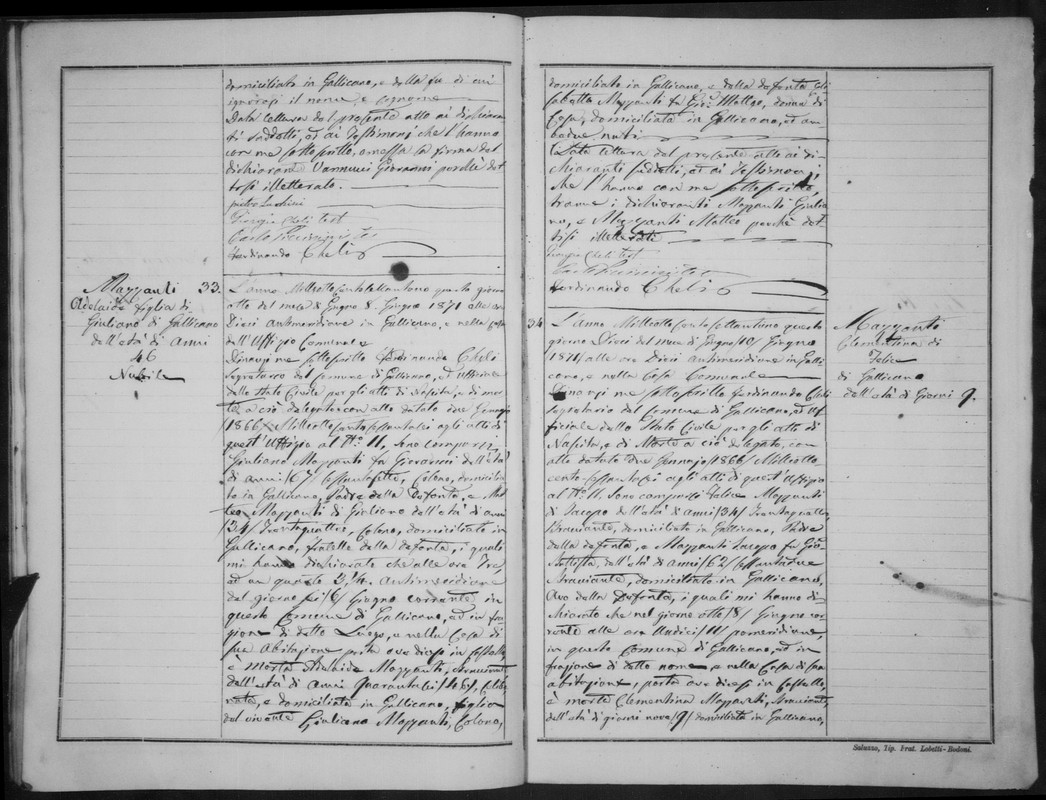 domiciliato in Gallicano, e della fu di cui
ignorasi il nome, e cognome
Data lettura del presente atto ai dichiaran
ti suddetti, ed ai Testimonj che l'hanno
con me sottoscritto, omessa la firma del
dichiarante Vannucci Giovanni perchè det
tosi illetterato.
Giorgio Cheli test
Ferdinando Cheli
Mazzanti 33.
Adelaide figlia di
Giuliano di Gallicano
dell'età di Anni
46
Nubile
L'anno Milleottocentosettantuno questo giorno
otto del mese di Giugno 8. Giugno 1871 alle ore
Dieci antimeridiane in Gallicano, e nella casa
dell'Uffizio Comunale
Dinanzi me sottoscritto Ferdinando Cheli
Segretario del Comune di Gallicano, ed Uffiziale
dello Stato Civile per gli atti di Nascita, e di mor
te a ciò delegato con atto datato due Gennajo
1866 Milleottocentosessantasei agli atti di
quest'Uffizio al No. 11, sono comparsi
Giuliano Mazzanti fu Giovanni dell'età
di anni /67/ sessantasette, Colono, domicilia
to in Gallicano, Padre della Defonta, e Mat
teo Mazzanti di Giuliano dell'età di anni
/34/ Trentaquattro, Colono, domiciliato in
Gallicano, fratello della defonta, i quali
mi hanno dichiarato che alle ore Tre,
ed un quarto 3 1/4. Antimeridiane
del giorno sei /6/ Giugno corrente in
questo Comune di Gallicano, ed in fra
zione di detto Luogo, e nella Casa di
sua abitazione posta ove dicesi in Castello
è morta Adelaide Mazzanti,
dell'età di Anni Quarantasei /46/,
e domiciliata in Gallicano, figlia
del vivente Giuliano Mazzanti, Colono,
domiciliato in Gallicano, e della defonta Eli
sabetta Mazzanti fu Gio: Matteo, donna di
Casa, domiciliata in Gallicano, ed am
bedue nati
Data lettura del presente atto ai di-
chiaranti suddetti, ed ai Testimonj,
che l'hanno con me sottoscritto,
tranne i dichiaranti Mazzanti Giulia
no, e Mazzanti Matteo perchè det
tisi illetterati
Giorgio Cheli test
Ferdinando Cheli
34
L'anno Milleottocentosettantuno questo
giorno Dieci del mese di Giugno /10/ Giugno
1871 alle ore Dieci antimeridiane in Galli
cano, e nella Casa Comunale
Dinanzi me sottoscritto Ferdinando Cheli
Segretario del Comune di Gallicano, ed Uf
ficiale dello Stato Civile per gli atti di
Nascita, e di Morte a ciò delegato, con
atto datato due Gennajo /1866/ Milleotto
cento-sessantasei agli atti di quest'Uffizio
al No. 11. Sono comparsi Felice Mazzanti
di Jacopo dell'età di Anni /34/ Trentaquattro,
Bracciante, domiciliato in Gallicano, Padre
della defonta, e Mazzanti Jacopo fu Gio:
Battista, dell'età di anni /62/ sessantadue
Bracciante, domiciliato in Gallicano,
Avo della Defonta, i quali mi hanno di-
chiarato che nel giorno otto /8/ Giugno cor-
rente alle ore Undici /11/ pomeridiane,
in questo Comune di Gallicano, ed in
frazione di detto nome, e nella Casa di sua
abitazione, posta ove dicesi in Castello,
è morta Clementina Mazzanti,
dell'età di giorni nove /9/ domiciliata in Gallicano,
Mazzanti
Clementina di
Felice
di Gallicano
dell'età di Giorni 9.
Saluzzo, Tip. Frat. Lobetti-Bodoni.